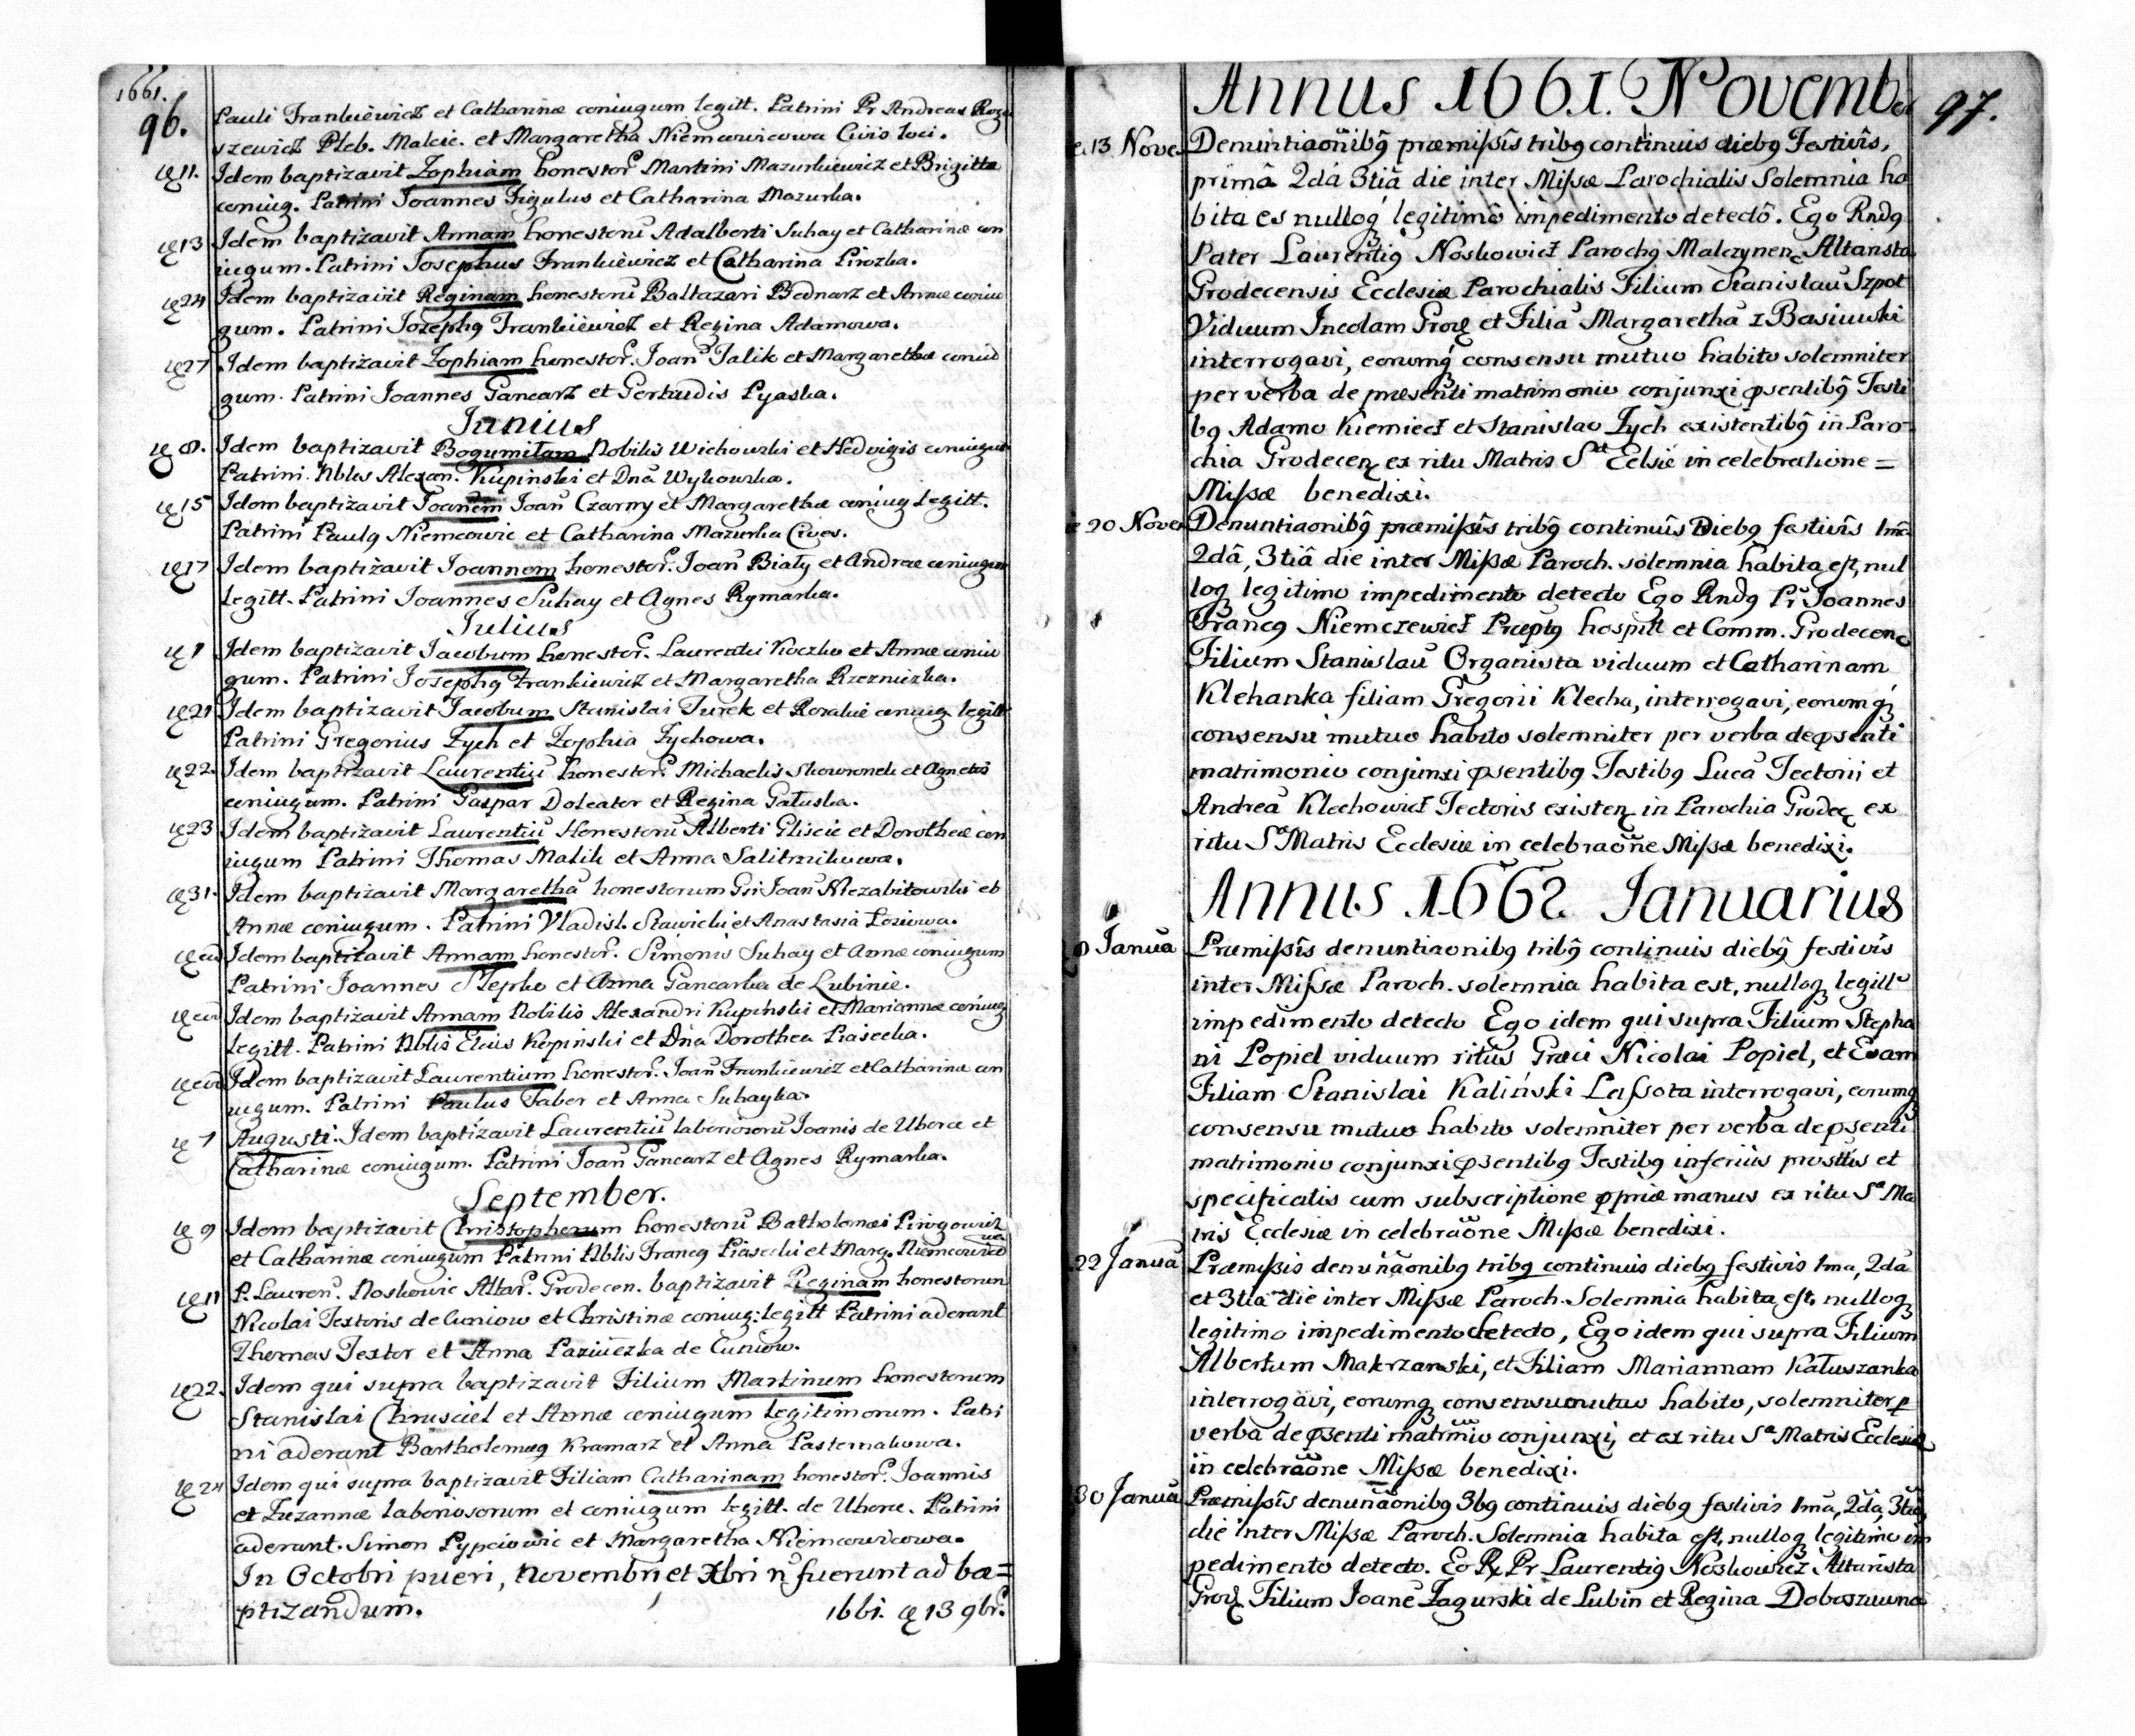 1661.
96.
Pauli Frankiewicz et Catharinæ coniugum legitt. Patrini Pr Andreas Roga
szewicz Pleb. Malcic. et Margaretha Niemcewicowa Civis loci.
11. Idem baptizavit Zophiam honestor. Martini Mazurkiewicz et Brigitta
coniug. Patrini Joannes Figulus et Catharina Mazurka.
13 Idem baptizavit Annam honestorū Adalberti Suhay et Catharinæ con
iugum. Patrini Josephus Frankiewicz et Catharina Pirozka.
24 Idem baptizavit Reginam honestorū Baltazari Bednarz et Annæ coniu
gum. Patrini Josephg Frankiewicz et Regina Adamowa.
27 Idem baptizavit Zophiam honestor. Joan Jalik et Margarethæ coniu
gum. Patrini Joannes Gancarz et Gertrudis Pyaska.
Junius
8. Idem baptizavit Bogumilam Nobilis Wichowski et Hedvigis coniugum
Patrini Nbles Alexan. Kupinski et Dna Wykowska.
15 Idem baptizavit Joanem Joan Czarny et Margarethæ coniug legitt.
Patrini Paulg Niemcowic et Catharina Mazurka Cives.
17 Idem baptizavit Joannem honestor. Joan Biały et Andreæ coniugum
legitt. Patrini Joannes Suhay et Agnes Rymarka.
Julius
1 Idem baptizavit Jacobum honestor. Laurentii Koczko et Annæ coniu
gum. Patrini Josephg Frankiewicz et Margaretha Rzezniczka.
21 Idem baptizavit Jacobum Stanislai Turek et Rosaliæ coniug legitt
Patrini Gregorius Zych et Zophia Zychowa.
22. Idem baptizavit Laurentiū honestor. Michaelis Skowronek et Agnetis
coniugum. Patrini Gaspar Doleator et Regina Gałuska.
23 Idem baptizavit Laurentiū Honestorū Alberti Gliscic et Dorotheæ con
iugum Patrini Thomas Malik et Anna Salitrnikowa.
31. Idem baptizavit Margarethā honestorum Gsi Joan Niezabitowski et
Annæ coniugum. Patrini Vladisl. Stawicki et Anastasia Loziowa.
Idem baptizavit Annam honestor. Simonis Suhay et Annæ coniugum
Patrini Joannes Stepko et Anna Gancarka de Lubinie.
Idem baptizavit Annam Nobilis Alexandri Kupinski et Mariannæ coniug
legitt. Patrini Nblis Elias Kopinski et Dna Dorothea Piasecka.
Idem baptizavit Laurentium honestor. Joan Frankiewicz et Catharinæ con
iugum. Patrini Paulus Faber et Anna Suhayka.
7 Augusti. Idem baptizavit Laurentiū laboriosorū Joanis de Uherce et
Catharinæ coniugum. Patrini Joan Gancarz et Agnes Rymarka.
September.
9 Idem baptizavit Christopherum honestorū Batholomæi Pirogowicz
et Catharinæ coniugum Patrini Nblis Francg Piasecki et Marg. Niemcowico
wa
11 P. Lauren. Noskowic Altar. Grodecen. baptizavit Reginam honestorum
Nicolai Textoris de Cuniow et Christinæ coniug: legitt Patrini aderant
Thomas Textor et Anna Paziuczka de Cuniow.
22. Idem qui supra baptizavit Filium Martinum honestorum
Stanislai Chrusciel et Annæ coniugum legitimorum. Patri
ni aderant Bartholemeg Kramarz et Anna Pasternakowa.
24 Idem qui supra baptizavit Filiam Catharinam honestor. Joannis
et Zuzannæ laboriosorum et coniugum legitt. de Uherce. Patrini
aderant. Simon Pypciowic et Margaretha Niemcowicowa.
In Octobri pueri, Novembri et Xbri ñ fuerunt ad ba=
ptizandum.
1661. 13 9br.
Annus 1661. November
97.
13 Nove Denuntiaōnibg præmißis tribg continuis diebg Festivis,
primâ 2dâ 3tiâ die inter Mißæ Parochialis Solemnia ha
bita es nulloq legitimô impedimento detectô. Ego Rndg
Pater Laurentig Noskowicz Parochg Malczynen Altarista
Grodecensis Ecclesiæ Parochialis Filium Stanislaū Szpot
Viduum Incolam Grod et Filiā Margarethā z Basiuwki
interrogavi, eorumq consensu mutuo habito solemniter
per verba de præsenti matrimonio conjunxi psentibg Testi
bg Adamo Kiemiecz et Stanislao Zych existentibg in Paro
chia Grodecen ex ritu Matris Stæ Eclsiæ in celebratione =
Mißæ benedixi.
20 Nove Denuntiaonibg præmißis tribg continuis Diebg festivis 1mâ
2dâ, 3tiâ die inter Mißæ Paroch. solemnia habita est, nul
loq legitimo impedimento detecto Ego Rndg Pr Joannes
Francg Niemczewicz Præptg hospitt et Comm. Grodecen
Filium Stanislaū Organista viduum et Catharinam
Klehanka filiam Gregorii Klecha, interrogavi, eorumq
consensu mutuo habito solemniter per verba de psenti
matrimonio conjunxi psentibg Testibg Lucā Tectorii et
Andreā Klechowicz Tectoris existen in Parochia Grodec ex
ritu Sæ Matris Ecclesiæ in celebraōne Mißæ benedixi.
Annus 1662 Januarius
8 Janua Præmißis denuntiaonibg tribg continuis diebg festivis
inter Mißæ Paroch. solemnia habita est, nulloq legitto
impedimento detecto Ego idem qui supra Filium Stepha
ni Popiel viduum ritus Græci Nicolai Popiel, et Evam
Filiam Stanislai Kaliński Laßota interrogavi, eorumq
consensu mutuo habito solemniter per verba de psenti
matrimonio conjunxi psentibg Testibg inferius prositis et
specificatis cum subscriptione ppriæ manus ex ritu Sæ Ma
tris Ecclesiæ in celebraōne Mißæ benedixi.
22 Janua Præmißis denunāonibg tribg continuis diebg festivis 1ma, 2da
et 3tia die inter Mißæ Paroch. Solemnia habita est, nulloq
legitimo impedimento detecto, Ego idem qui supra Filium
Albertum Makrzanski, et Filiam Mariannam Kałuszanka
interrogavi, eorumq consensu mutuo habito, solemniter p
verba de psenti matrmio conjunxi, et ex ritu Sæ Matris Ecclesiæ
in celebraōne Mißæ benedixi.
30 Janua Præmißis denunāonibg 3bg continuis diebg festivis 1ma, 2da, 3tia
die inter Mißæ Paroch. Solemnia habita est, nulloq legitimo im
pedimento detecto. Eo R Pr Laurentig Noskowicz Altarista
Grod Filium Joanē Zagurski de Lubin et Regina Doboszuwna